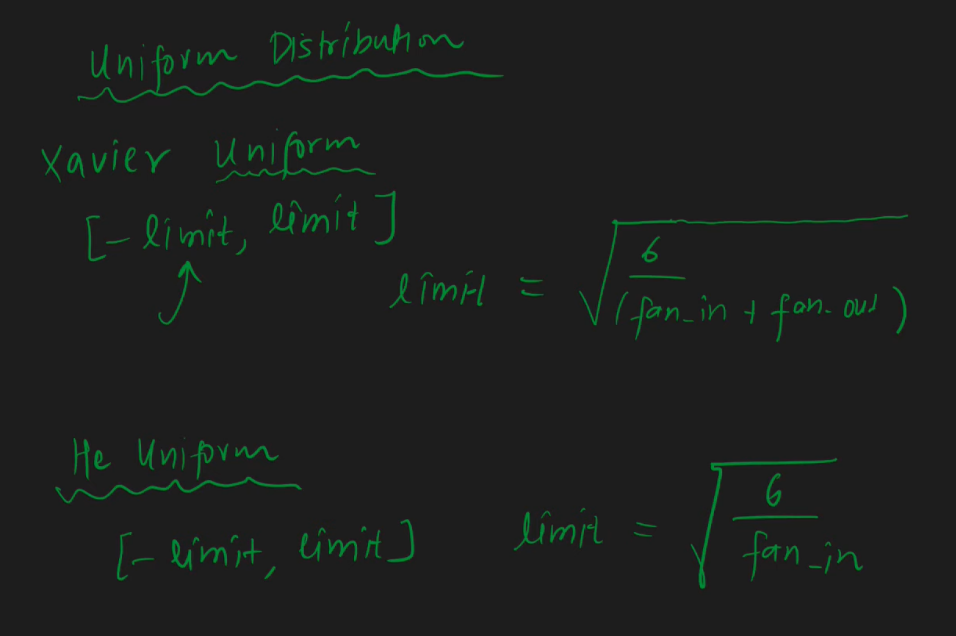 Uniform Distribution
Xavier Uniform
[-limit, limit]
limit = √(6 / (fan_in + fan_out))
He Uniform
[-limit, limit] limit = √(6 / fan_in)